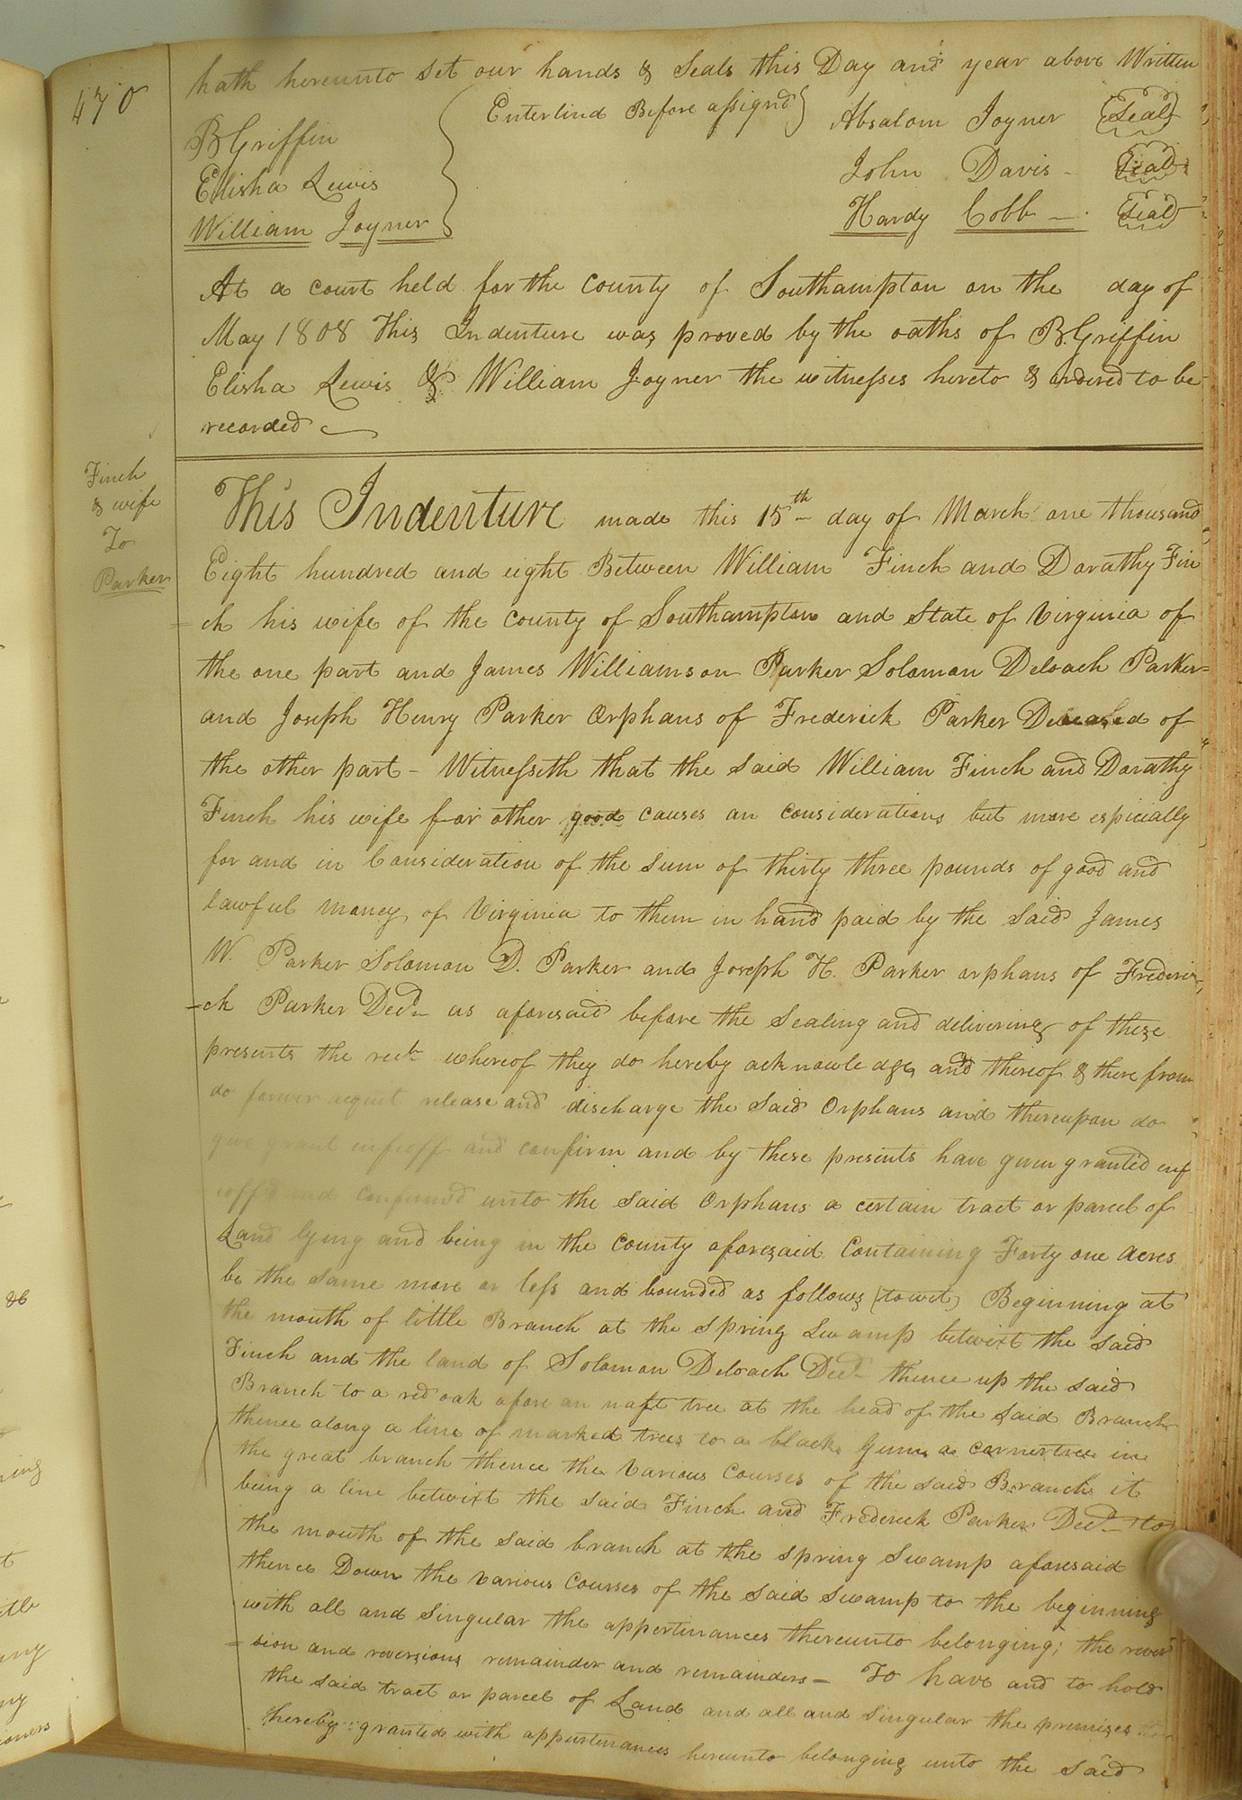 470
hath hereunto set our hands & Seals this Day and year above Written
B Griffin
Elisha Lewis
William Joyner
Enterlind Before assignd
Absalom Joyner Seal
John Davis - Seal
Hardy Cobb - Seal
At a court held for the County of Southampton on the day of
May 1808 This Indenture was proved by the oaths of B. Griffin
Elisha Lewis & William Joyner the witnesses hereto & ordered to be
recorded
Finch
& wife
To
Parker
This Indenture made this 15th day of March one thousand
Eight hundred and eight Between William Finch and Darathy Fin
ch his wife of the County of Southampton and State of Virginia of
the one part and James Williamson Parker Solomon Deloach Parker
and Joseph Henry Parker Orphans of Frederick Parker Deceased of
the other part - Witnesseth that the said William Finch and Darathy
Finch his wife for other good causes an considerations but more espicially
for and in Consideration of the Sum of thirty three pounds of good and
lawful money of Virginia to them in hand paid by the said James
W. Parker Solomon D. Parker and Joseph H. Parker orphans of Frederi
-ck Parker Decd as aforesaid before the Sealing and delivering of these
presents the rect whereof they do hereby acknowledge and thereof & therefrom
do forver acquit release and discharge the said Orphans and thereupon do
give grant infeoff and confirm and by these presents have given granted enf
eoffd and confirmd unto the said Orphans a certain tract or parcel of
Land lying and being in the County aforesaid Containing Forty one Acres
be the same more or less and bounded as follows (towit) Beginning at
the mouth of little Branch at the Spring Swamp betwixt the said
Finch and the land of Solomon Deloach Decd thence up the said
Branch to a red oak afore an tree at the head of the said Branch
thence along a line of marked trees to a black Gum a cornertree in
the great branch thence the Various Courses of the said Branch it
being a line betwixt the said Finch and Frederick Parker Decd to
the mouth of the said branch at the Spring Swamp aforesaid
thence Down the various Courses of the said Swamp to the beginning
with all and Singular the appertinances thereunto belonging; the rever
= sion and reversions remainder and remainders - To have and to hold
the said tract or parcel of Land and all and Singular the premises
thereby granted with appurtenances hereunto belonging unto the said